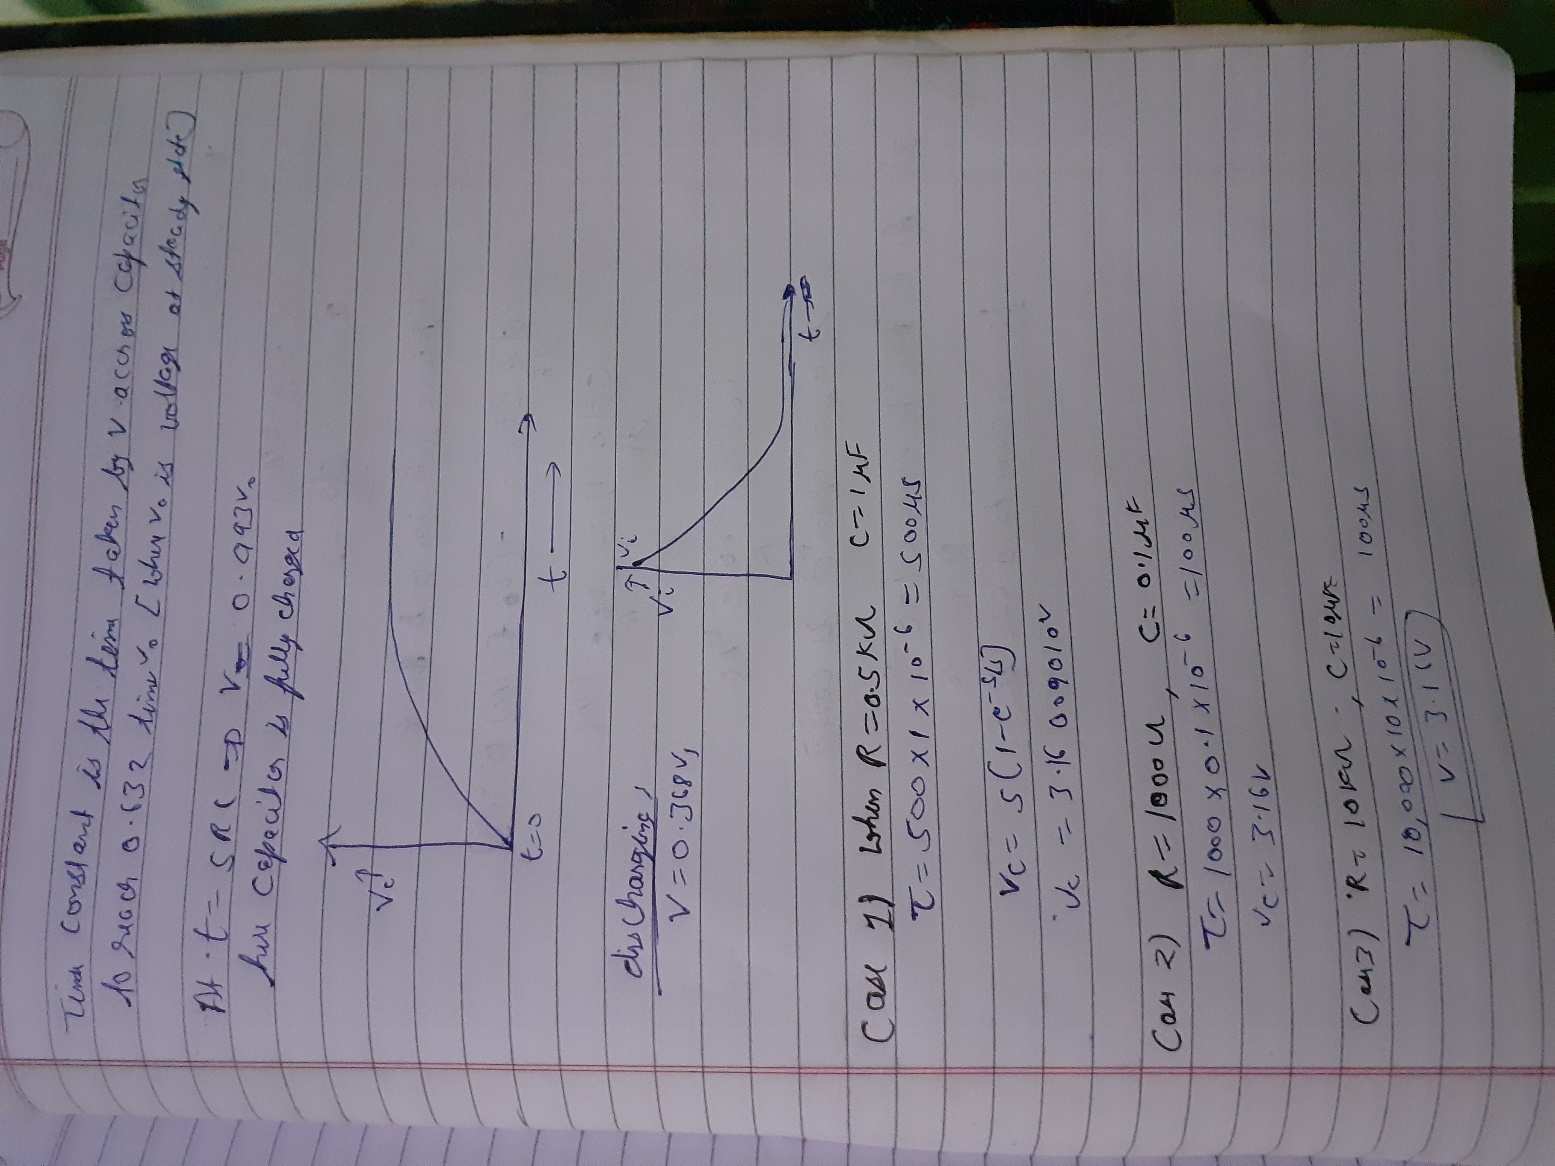 Time constant is the time taken by V across capacitor
to reach 0.632 times V₀ [when V₀ is voltage at steady state]
At t = 5RC → V = 0.993V₀
here capacitor is fully charged
Vc↑
t=0
t →
discharging,
V = 0.368V,
Vc↑
Vi
t →
Case 1) when R=0.5KΩ C=1μF
τ = 500×1×10⁻⁶ = 500μs
Vc = 5(1-e
Vc = 3.16 v
Case 2) R=1000Ω, C=0.1μF
τ = 1000×0.1×10⁻⁶ = 100μs
Vc = 3.16V
Case 3) R=10KΩ, C=10
τ = 10,000×10×10⁻⁶ = 100μs
V = 3.16V